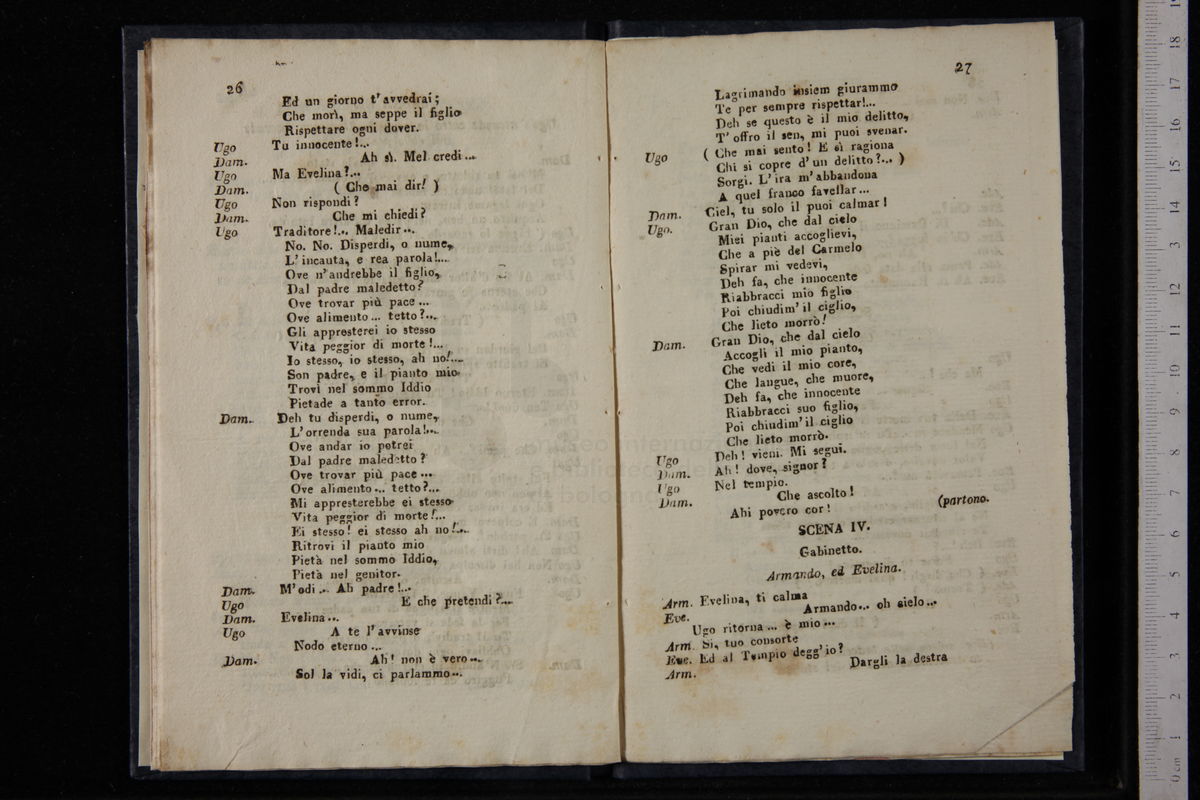 26
Ed un giorno t'avvedrai;
Che morì, ma seppe il figlio
Rispettare ogni dover.
Ugo Tu innocente!...
Dam. Ah sì. Mel credi...
Ugo Ma Evelina?...
Dam. (Che mai dir!)
Ugo Non rispondi?
Dam. Che mi chiedi?
Ugo Traditore!... Maledir...
No. No. Disperdi, o nume,
L'incauta, e rea parola!...
Ove n'andrebbe il figlio,
Dal padre maledetto?
Ove trovar più pace...
Ove alimento... tetto?...
Gli appresterei io stesso
Vita peggior di morte!...
Io stesso, io stesso, ah no!...
Son padre, e il pianto mio
Trovi nel sommo Iddio
Pietade a tanto error.
Dam. Deh tu disperdi, o nume,
L'orrenda sua parola!...
Ove andar io potrei
Dal padre maledetto?
Ove trovar più pace...
Ove alimento... tetto?...
Mi appresterebbe ei stesso
Vita peggior di morte!...
Ei stesso! ei stesso ah no!...
Ritrovi il pianto mio
Pietà nel sommo Iddio,
Pietà nel genitor.
Dam. M'odi... Ah padre!...
Ugo E che pretendi?...
Dam. Evelina...
Ugo A te l'avvinse
Nodo eterno...
Dam. Ah! non è vero...
Sol la vidi, ci parlammo...
27
Lagrimando insiem giurammo
Te per sempre rispettar!...
Deh se questo è il mio delitto,
T'offro il sen, mi puoi svenar.
Ugo (Che mai sento! E sì ragiona
Chi si copre d'un delitto?...)
Sorgi. L'ira m'abbandona
A quel franco favellar...
Dam. Ciel, tu solo il puoi calmar!
Ugo. Gran Dio, che dal cielo
Miei pianti accoglievi,
Che a piè del Carmelo
Spirar mi vedevi,
Deh fa, che innocente
Riabbracci mio figlio
Poi chiudim'il ciglio,
Che lieto morrò!
Dam. Gran Dio, che dal cielo
Accogli il mio pianto,
Che vedi il mio core,
Che langue, che muore,
Deh fa, che innocente
Riabbracci suo figlio,
Poi chiudim'il ciglio
Che lieto morrò.
Ugo Deh! vieni. Mi segui.
Dam. Ah! dove, signor?
Ugo Nel tempio.
Dam. Che ascolto!
Ahi povero cor! (partono.
SCENA IV.
Gabinetto.
Armando, ed Evelina.
Arm. Evelina, ti calma
Eve. Armando... oh cielo...
Ugo ritorna... è mio...
Arm. Sì, tuo consorte
Eve. Ed al Tempio degg'io?
Arm. Dargli la destra